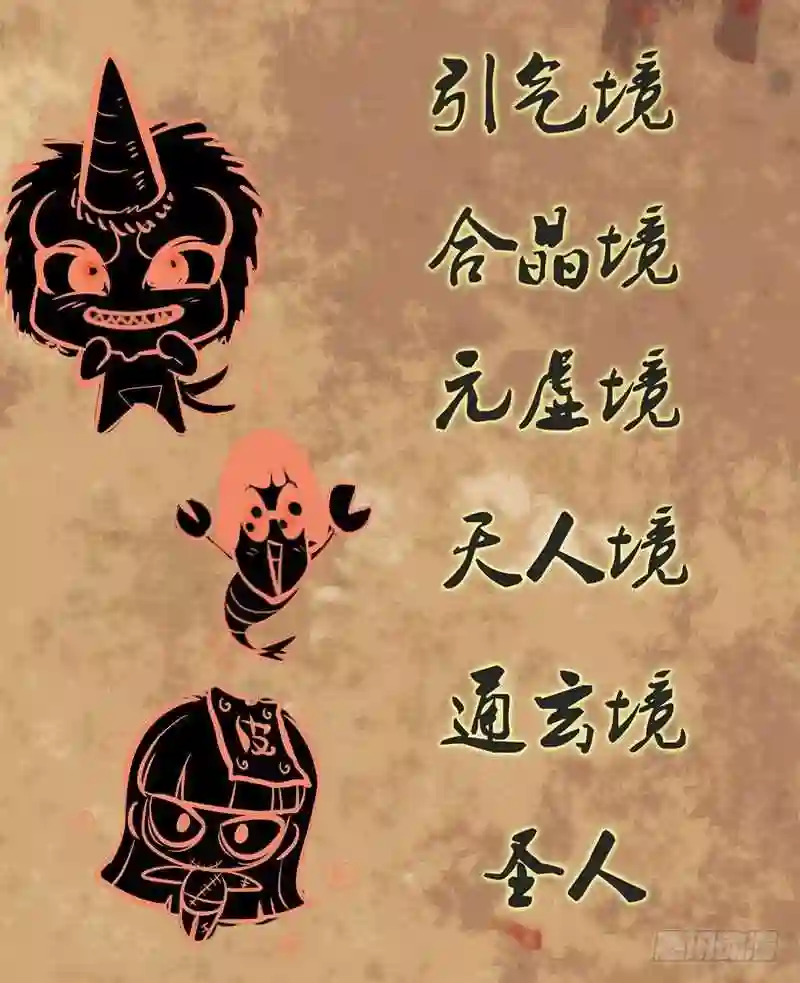 引气境
合晶境
元虚境
天人境
皮
通玄境
圣人